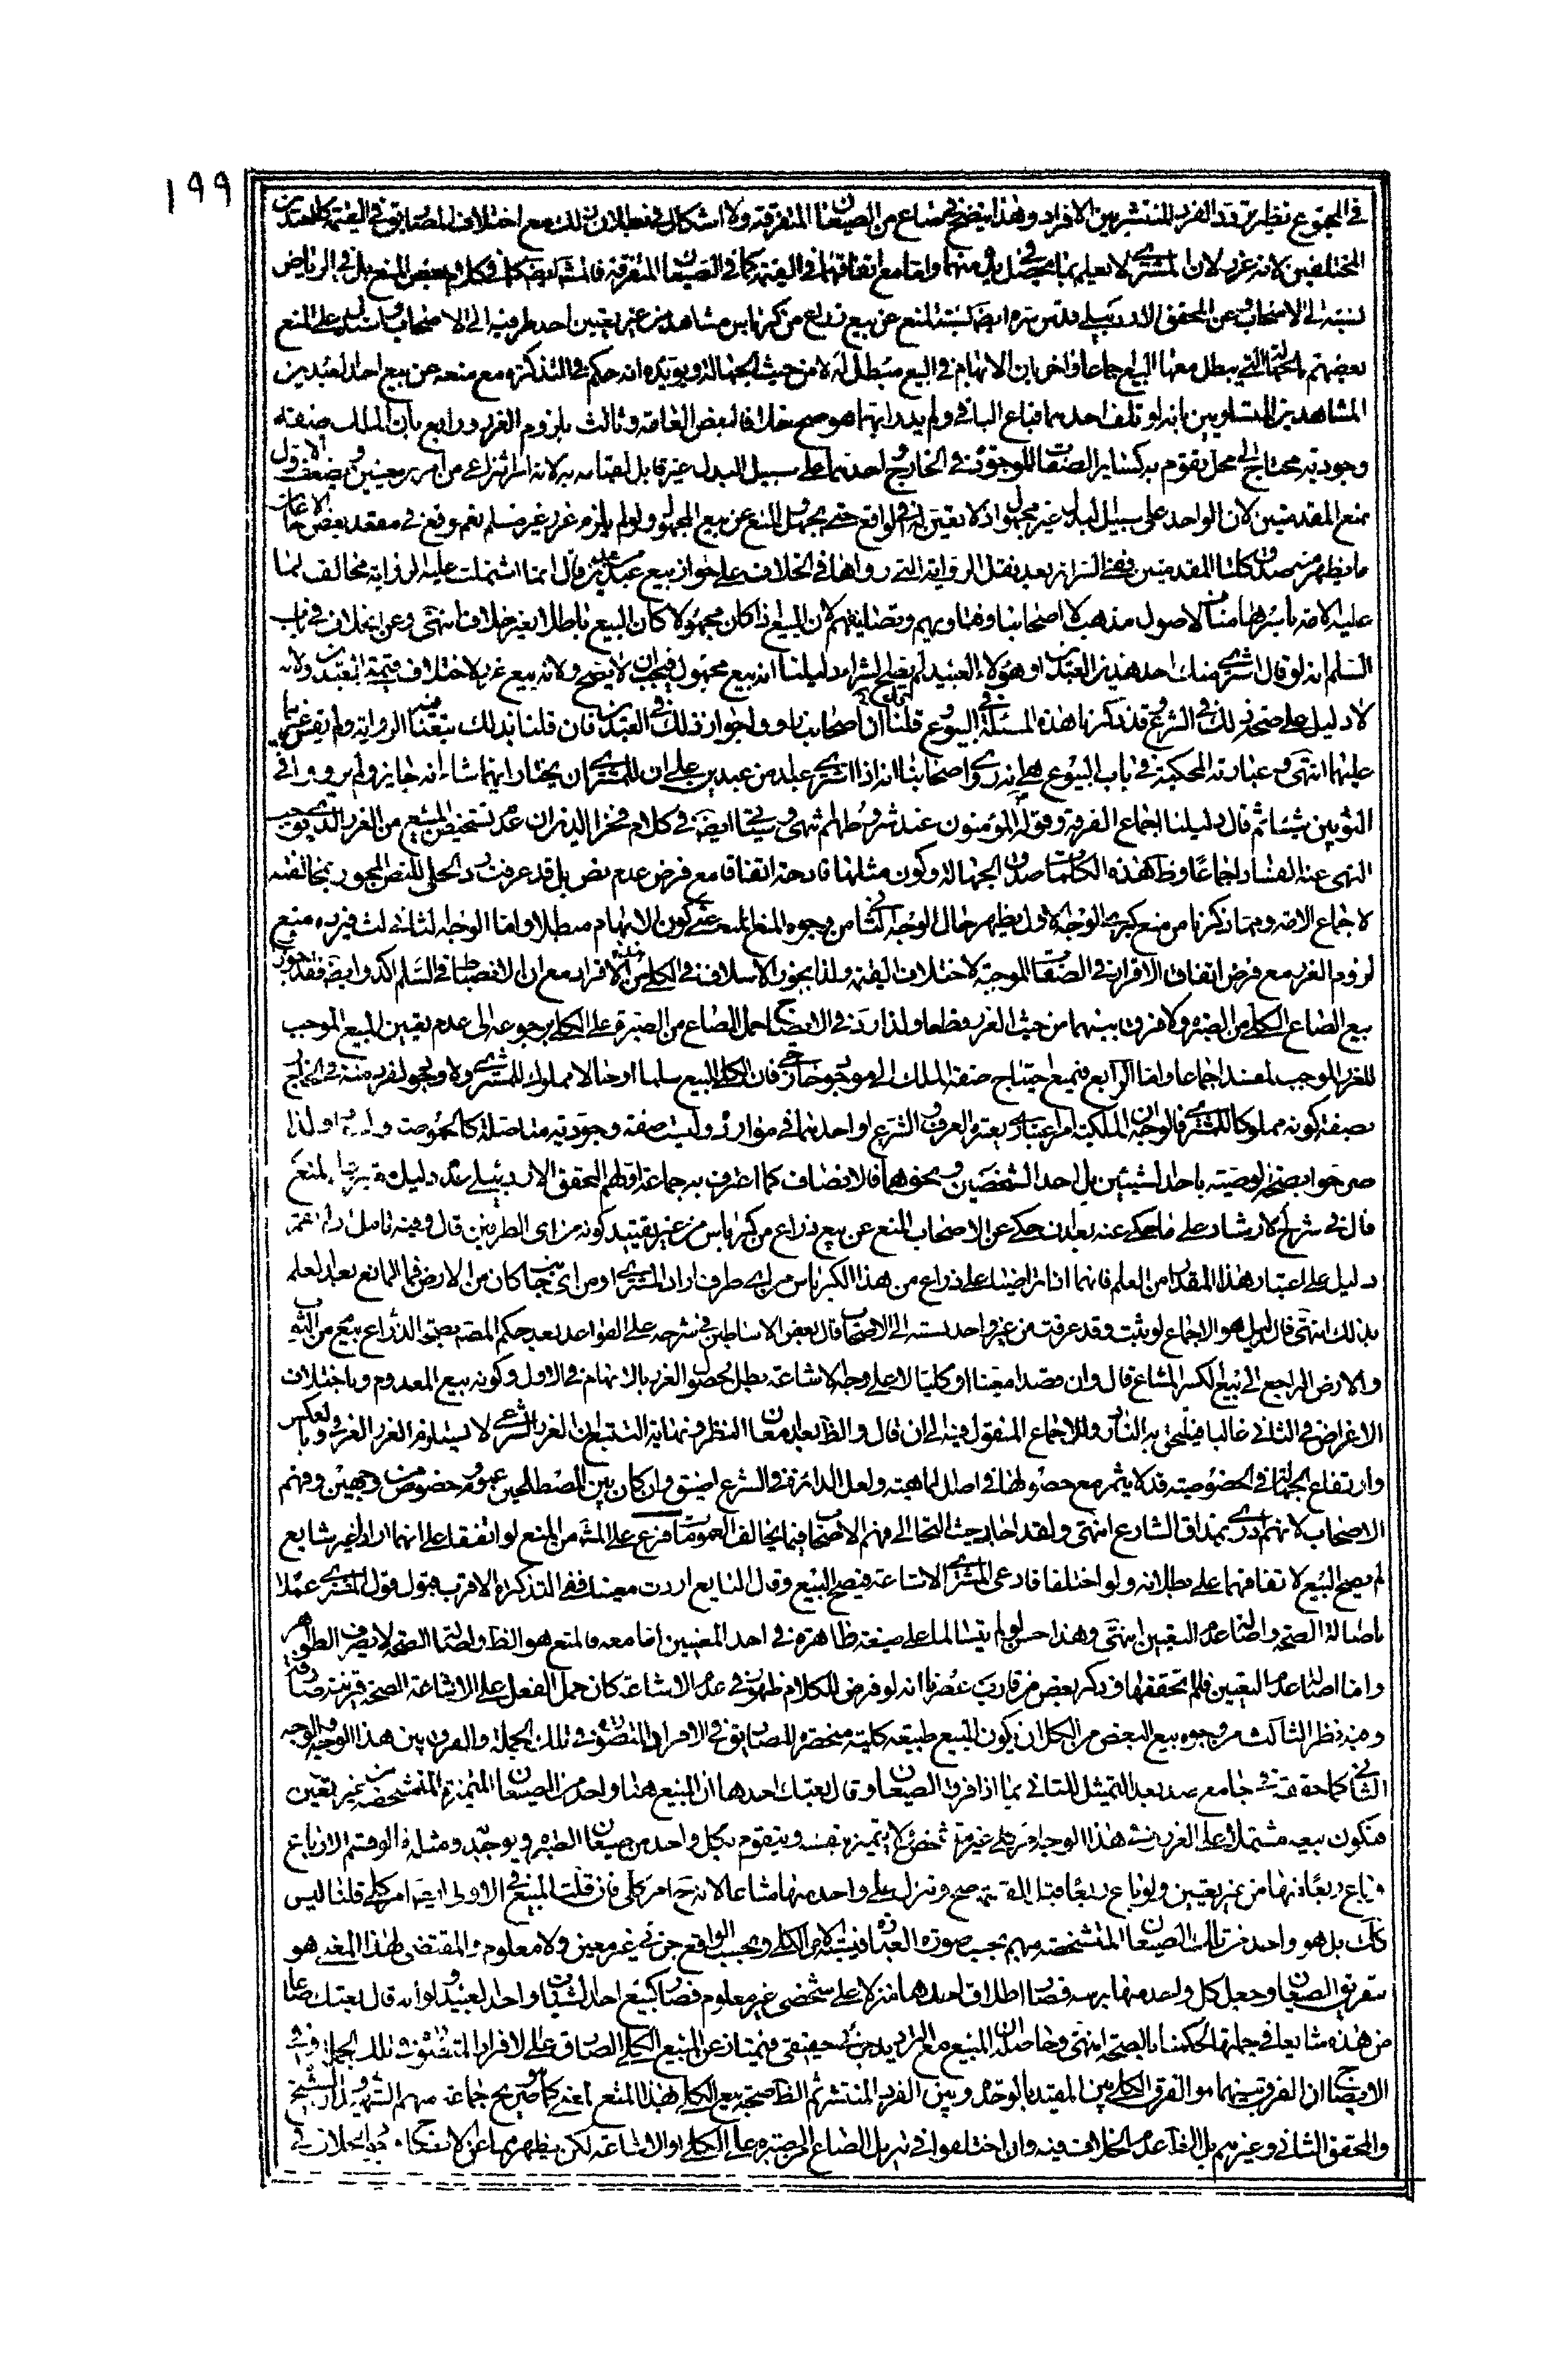 ١٩٩
في المجموع نظير تردد الفرد المنتشر بين الافراد وهذا يتضح في صاع من الصيعان المتفرقة ولا اشكال في بطلان ذلك مع اختلاف المصاديق في القيمة كالعبدين
المختلفين لانه غرر لان المشتري لا يعلم بما يحصل في يده منهما واما مع اتفاقهما في القيمة كما في الصيعان المتفرقة فالمشهور ايضا كما في كلام بعض المنع بل في الرياض
نسبته الى الاصحاب وعن المحقق الاردبيلي قدس سره ايضا نسبة المنع عن بيع ذراع من كرباس مشاهد من غير تعيين احد طرفيه الى الاصحاب واستدل على المنع
بعضهم بالجهالة التي يبطل معها البيع اجماعا واخر بان الابهام في البيع مبطل له لا من حيث الجهالة ويؤيده انه حكم في التذكرة مع منعه عن بيع احد العبدين
المشاهدين المتساويين بانه لو تلف احدهما فباع الباقي ولم يدر ايهما هو صح خلافا لبعض العامة وثالث بلزوم الغرر ورابع بان الملك صفة
وجودية محتاج الى محل يقوم به كسائر الصفات الموجودة في الخارج واحدهما على سبيل البدل غير قابل لقيامه به لانه امر انتزاعي من امرين معينين ويضعف الاول
بمنع المقدمتين لان الواحد على سبيل البدل غير مجهول اذ لا تعين له في الواقع حتى يجهل والمنع عن بيع المجهول ولو لم يلزم غرر غير مسلم نعم وقع في معقد بعض الاجماعات
ما يظهر منه صدق كلتا المقدمتين ففي السرائر بعد نقل الرواية التي رواها في الخلاف على جواز بيع عبد من عبدين قال ان ما اشتملت عليه الرواية مخالف لما
عليه الامة باسرها مناف لاصول مذهب اصحابنا وفتاويهم وتصانيفهم لان المبيع اذا كان مجهولا كان البيع باطلا بغير خلاف انتهى وعن الخلاف في باب
السلم انه لو قال اشتري منك احد هذين العبدين او هؤلاء العبيد لم يصح الشراء دليلنا انه بيع مجهول فيجب ان لا يصح ولانه بيع غرر لاختلاف قيمتي العبدين ولانه
لا دليل على صحة ذلك في الشرع وقد ذكرنا هذه المسئلة في البيوع وقلنا ان اصحابنا رووا جواز ذلك في العبدين فان قلنا بذلك تبعنا فيه الرواية ولم يقس غيرهما
عليهما انتهى وعبارته المحكية في باب البيوع هي انه روى اصحابنا انه اذا اشترى عبدا من عبدين على ان للمشتري ان يختار ايهما شاء انه جايز ولم يرووا في
الثوبين شيئا ثم قال دليلنا اجماع الفرقة وقوله المؤمنون عند شروطهم انتهى وسيأتي ايضا في كلام فخر الدين ان عدم تشخيص المبيع من الغرر الذي يوجب
النهي عنه الفساد اجماعا وظاهر هذه الكلمات صدق الجهالة وكون مثلها قادحة اتفاقا مع فرض عدم نص بل قد عرفت رد الحلي للنص المجوز بمخالفته
لاجماع الامة ومما ذكرنا من منع كبرى الوجه الاول يظهر حال الوجه الثاني من وجوه المنع اعني كون الابهام مبطلا واما الوجه الثالث فيرده منع
لزوم الغرر مع فرض اتفاق الافراد في الصفات الموجبة لاختلاف القيمة ولذا يجوز الاسلاف في الكلي من هذه الافراد مع ان الانضباط في السلم اكد وايضا فقد جوزوا
بيع الصاع الكلي من الصبرة ولا فرق بينهما من حيث الغرر قطعا ولذا رد في الايضاح حمل الصاع من الصبرة على الكلي برجوعه الى عدم تعيين المبيع الموجب
للغرر الموجب لمفسد اجماعا واما الرابع فبمنع احتياج صفة الملك الى موجود خارجي فان الكلي المبيع سلما او حالا مملوك للمشتري ولا وجود لفرد منه في الخارج
بصفة كونه مملوكا للمشتري فالوجه ان الملكية امر اعتباري يعتبره العرف والشرع او احدهما في موارده وليست صفة وجودية متاصلة كالحموضة والسواد ولذا
صرحوا بصحة الوصية باحد الشيئين بل احد الشخصين ونحوهما فالانصاف كما اعترف به جماعة اولهم المحقق الاردبيلي عدم دليل معتبر على المنع
قال في شرح الارشاد على ما حكي عنه بعد ان حكى عن الاصحاب المنع عن بيع ذراع من كرباس من غير تقييد كونه من اي الطرفين قال وفيه تامل اذ لم يقم
دليل على اعتبار هذا المقدار من العلم فانهما اذا تراضيا على ذراع من هذا الكرباس من اي طرف اراد المشتري او من اي جانب كان من الارض فما المانع بعد العلم
بذلك انتهى فالدليل هو الاجماع لو ثبت وقد عرفت من غير واحد نسبته الى الاصحاب قال بعض الاساطين في شرحه على القواعد بعد حكم المصنف بصحة بيع الذراع من الثوب
والارض الراجع الى بيع الكسر المشاع قال وان قصدا معينا او كليا لا على وجه الاشاعة بطل لحصول الغرر بالابهام في الاول وكونه بيع المعدوم وباختلاف
الاغراض في الثاني غالبا فيلحق به النادر وللاجماع المنقول فيه الى ان قال والظاهر بعد امعان النظر ونهاية التتبع ان الغرر الشرعي لا يستلزم الغرر العرفي وبالعكس
وارتفاع الجهالة في الخصوصية قد لا يثمر مع حصولها في اصل الماهية ولعل الدائرة في الشرع اضيق وان كان بين المصطلحين عموم وخصوص من وجهين وفهم
الاصحاب مقدم لانهم ادرى بمذاق الشارع انتهى ولقد اجاد حيث التجأ الى فهم الاصحاب فيما يخالف العمومات فرع على المشهور من المنع لو اتفقا على انهما ارادا غير شايع
لم يصح البيع لاتفاقهما على بطلانه ولو اختلفا فادعى المشتري الاشاعة فيصح البيع وقال البايع اردت معينا ففي التذكرة الاقرب قبول قول المشتري عملا
باصالة الصحة واصالة عدم التعيين انتهى وهذا حسن لو لم يتسالما على صيغة ظاهرة في احد المعنيين اما معه فالمتبع هو الظاهر واصالة الصحة لا تصرف الظواهر
واما اصالة عدم التعيين فلم اتحققها وذكر بعض من قارب عصرنا انه لو فرض للكلام ظهور في عدم الاشاعة كان حمل الفعل على الاشاعة الصحة قرينة صارفة
وفيه نظر الثالث من وجوه بيع البعض من الكل ان يكون المبيع طبيعة كلية منحصرة المصاديق في الافراد المتصورة في تلك الجملة والفرق بين هذا الوجه والوجه
الثاني كما حققه في جامع المقاصد بعد التمثيل للثاني بما اذا فرق الصيعان وقال بعتك احدها ان المبيع هنا واحد من الصيعان المتميزة المتشخصة غير متعين
فيكون بيعه مشتملا على الغرر وفي هذا الوجه امر كلي غير متشخص ولا متميز بنفسه ويتقوم بكل واحد من صيعان الصبرة ويوجد به ومثله لو قسم الارباع
وباع ربعا منها من غير تعيين ولو باع ربعا قبل القسمة صح وتنزل على واحد منها مشاعا لانه حينئذ امر كلي فان قلت المبيع في الاولى ايضا امر كلي قلنا ليس
كذلك بل هو واحد من تلك الصيعان المتشخصة مبهم بحسب صورة العبارة فيشبه الامر الكلي وبحسب الواقع جزئي غير معين ولا معلوم والمقتضي لهذا المعنى هو
تفريق الصيعان وجعل كل واحد منها براسه فصار اطلاق احدها منزلا على شخصي غير معلوم فصار كبيع احد الشياه واحد العبيد ولو انه قال بعتك صاعا
من هذه شايعا في جملتها لحكمنا بالصحة انتهى وحاصله ان المبيع مع الترديد جزئي حقيقي فيمتاز عن المبيع الكلي الصادق على الافراد المتصورة في تلك الجملة وفي
الايضاح ان الفرق بينهما هو الفرق بين الكلي المقيد بالوحدة وبين الفرد المنتشر ثم الظاهر صحة بيع الكلي بهذا المعنى كما هو صريح جماعة منهم الشهيدان والشيخ
والمحقق الثاني وغيرهم بل الظاهر عدم الخلاف فيه وان اختلفوا في تنزيل الصاع من الصبرة على الكلي او الاشاعة لكن يظهر مما عن الايضاح وجود الخلاف في